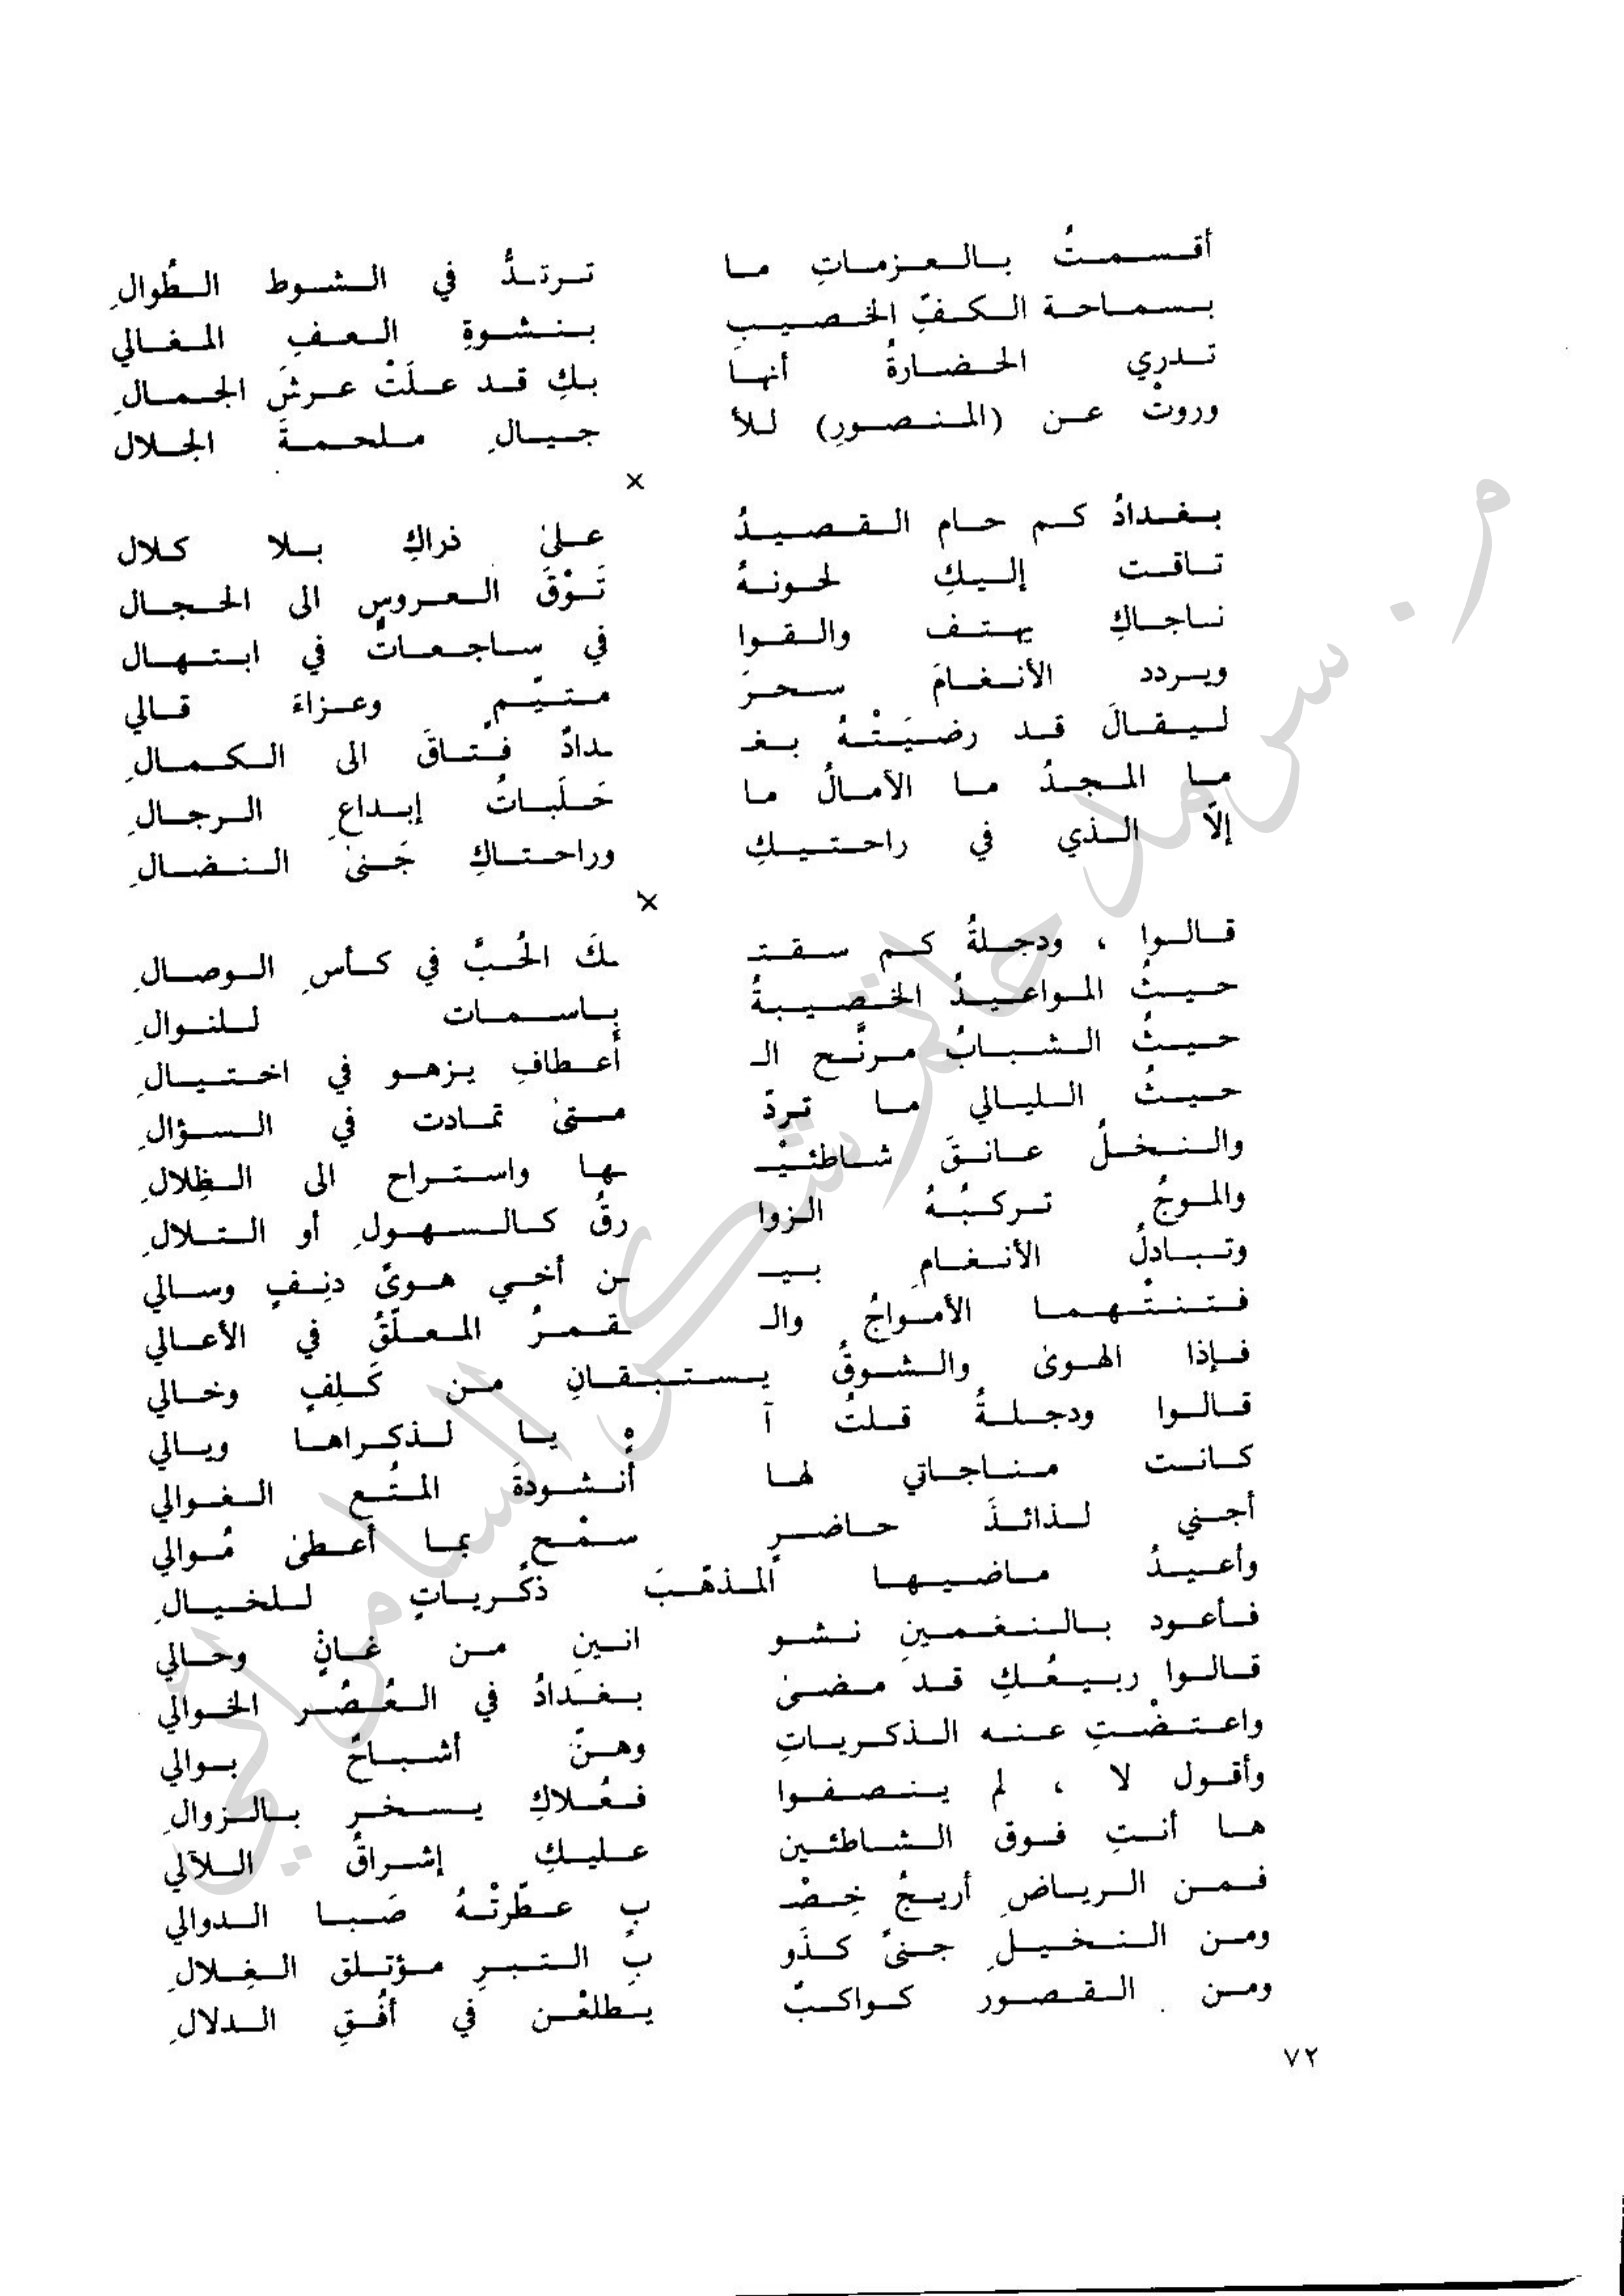 أقسمتُ بالعزماتِ ما ترتدُّ في الشوط الطُوالِ
بسماحة الكفِّ الخصيبِ بنشوةِ العفِ المغالي
تدري الحضارةُ أنها بكِ قد علَتْ عرشَ الجمالِ
وروتْ عن (المنصورِ) للأ جيالِ ملحمةَ الجلال
×
بغدادُ كم حام القصيدُ علىٰ ذراكِ بلا كلال
تاقت إليكِ لحونهُ تَوْقَ العروسِ الى الحجال
ناجاكِ يهتف والقوا في ساجعاتٌ في ابتهال
ويردد الأنغامَ سحرَ متيّمٍ وعزاءَ قالي
ليقالَ قد رضيَتْهُ بغـ ـدادٌ فتاقَ الى الكمالِ
ما المجدُ ما الآمالُ ما حَلَباتُ إبداعِ الرجالِ
إلّا الذي في راحتيكِ وراحتاكِ جَنىٰ النضالِ
×
قالوا ، ودجلةُ كم سقتـ ـكَ الحُبَّ في كأسِ الوصالِ
حيثُ المواعيدُ الخصيبةُ باسمات للنوالِ
حيثُ الشبابُ مرنَّح الـ أعطافِ يزهو في اختيالِ
حيثُ الليالي ما تردّ متىٰ تمادت في السؤالِ
والنخلُ عانقَ شاطئيْـ ـها واستراح الى الظِلالِ
والموجُ تركبُهُ الزوا رقُ كالسهولِ أو التلالِ
وتبادلُ الأنغامِ بيـ ـن أخي هوىً دنِفٍ وسالي
فتنتْهما الأمواجُ والـ ـقمرُ المعلّقُ في الأعالي
فإذا الهوىٰ والشوقُ يستبقانِ من كَلِفٍ وخالي
قالوا ودجلةُ قلتُ آ هٍ يا لذكراها ويالي
كانت مناجاتي لها أنشودةَ المتُع الغوالي
أجني لذائذَ حاضرٍ سمْحٍ بما أعطىٰ مُوالي
وأعيدُ ماضيها المذهّبَ ذكرياتٍ للخيالِ
فأعود بالنغمينِ نشو انينِ من غانٍ وحالي
قالوا ربيعُكِ قد مضىٰ بغدادُ في العُصُر الخوالي
واعتضْتِ عنه الذكرياتِ وهنّ أشباحٌ بوالي
وأقول لا ، لم ينصفوا فعُلاكِ يسخر بالزوالِ
ها أنتِ فوق الشاطئين عليكِ إشراقُ اللآلي
فمن الرياضِ أريجُ خِصْـ بٍ عطّرتْهُ صَبا الدوالي
ومن النخيلِ جنىً كذَو بِ التبرِ مؤتلق الغِلالِ
ومن القصور كواكبٌ يطلعْن في أفُقِ الدلالِ
٧٢
م. سرمد حاتم شكر السامرائي